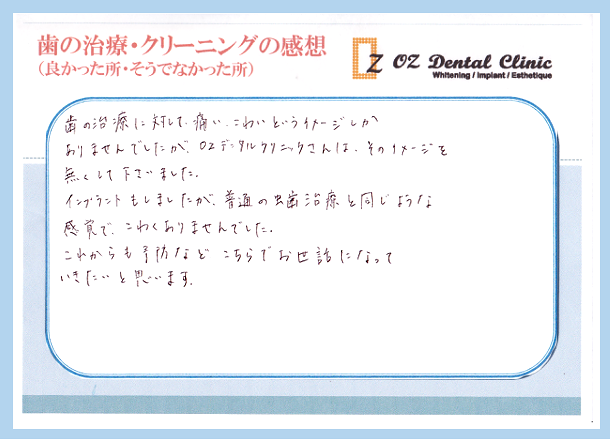 歯の治療・クリーニングの感想
(良かった所・そうでなかった所)
OZ Dental Clinic
Whitening / Implant / Esthetique
歯の治療に対して、痛い、こわいというイメージしか
ありませんでしたが、OZデンタルクリニックさんは、そのイメージを
無くして下さいました。
インプラントもしましたが、普通の虫歯治療と同じような
感覚で、こわくありませんでした。
これからも予防など こちらでお世話になって
いきたいと思います。